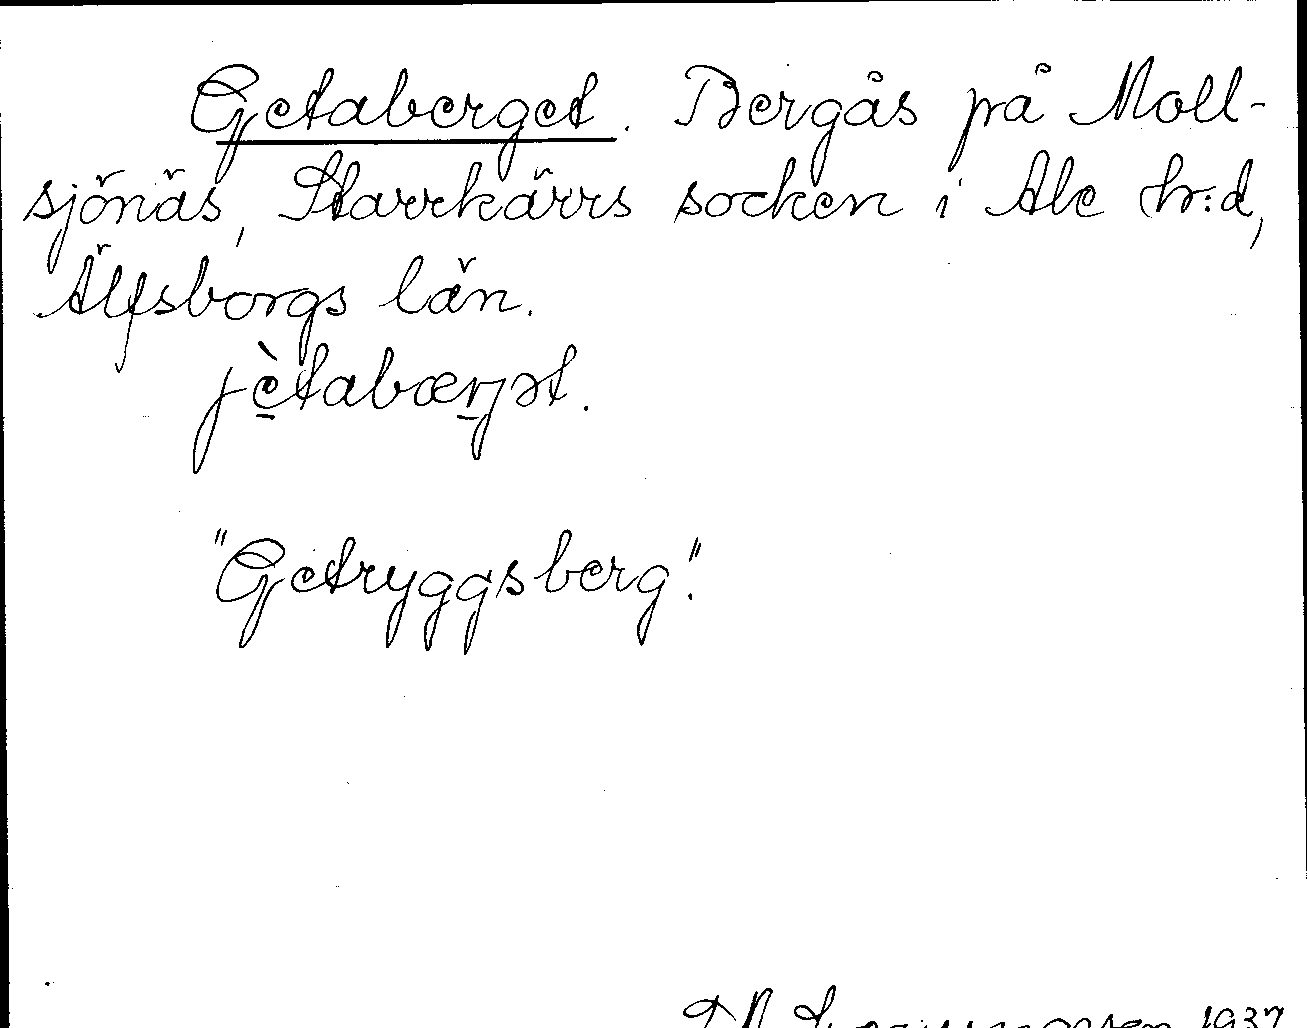 Getaberget. Bergås på Moll-
sjönäs, Starrkärrs socken i Ale hr:d,
Älfsborgs län.
jètabærjət.
"Getryggsberg".
1937